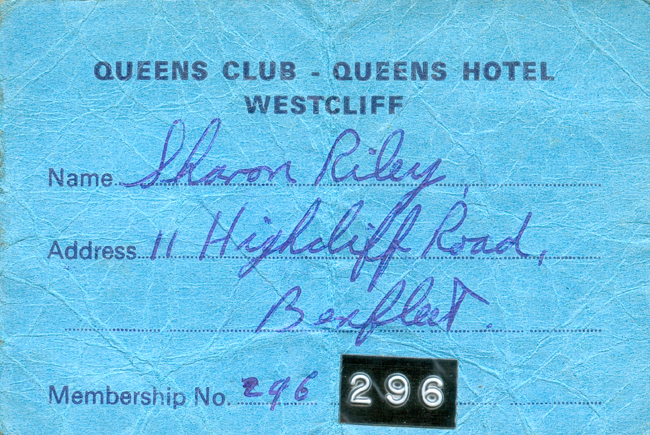 QUEENS CLUB - QUEENS HOTEL
WESTCLIFF
Name Sharon Riley,
Address 11 Highcliff Road,
Benfleet.
Membership No. 296 296